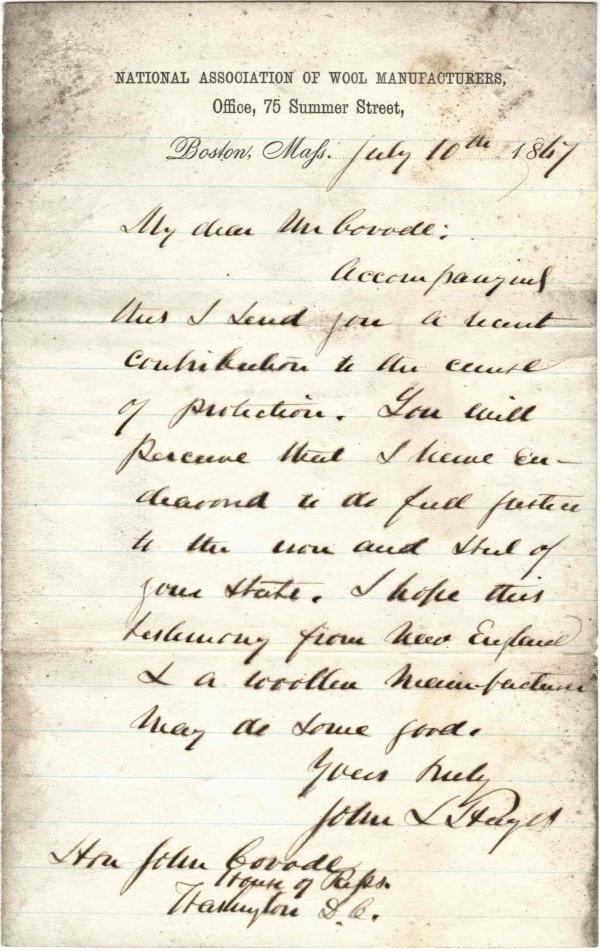 NATIONAL ASSOCIATION OF WOOL MANUFACTURERS,
Office, 75 Summer Street,
Boston, Mass. July 10th 1867
My dear Mr Covode:
Accompanying
this I send you a recent
contribution to the cause
of protection. You will
perceive that I have en-
deavord to do full justice
to the iron and steel of
your State. I hope this
testimony from New England
& a woollen manufacturer
may do some good.
Yours truly
John L Hayes
Hon John Covode
House of Reps.
Washington D.C.